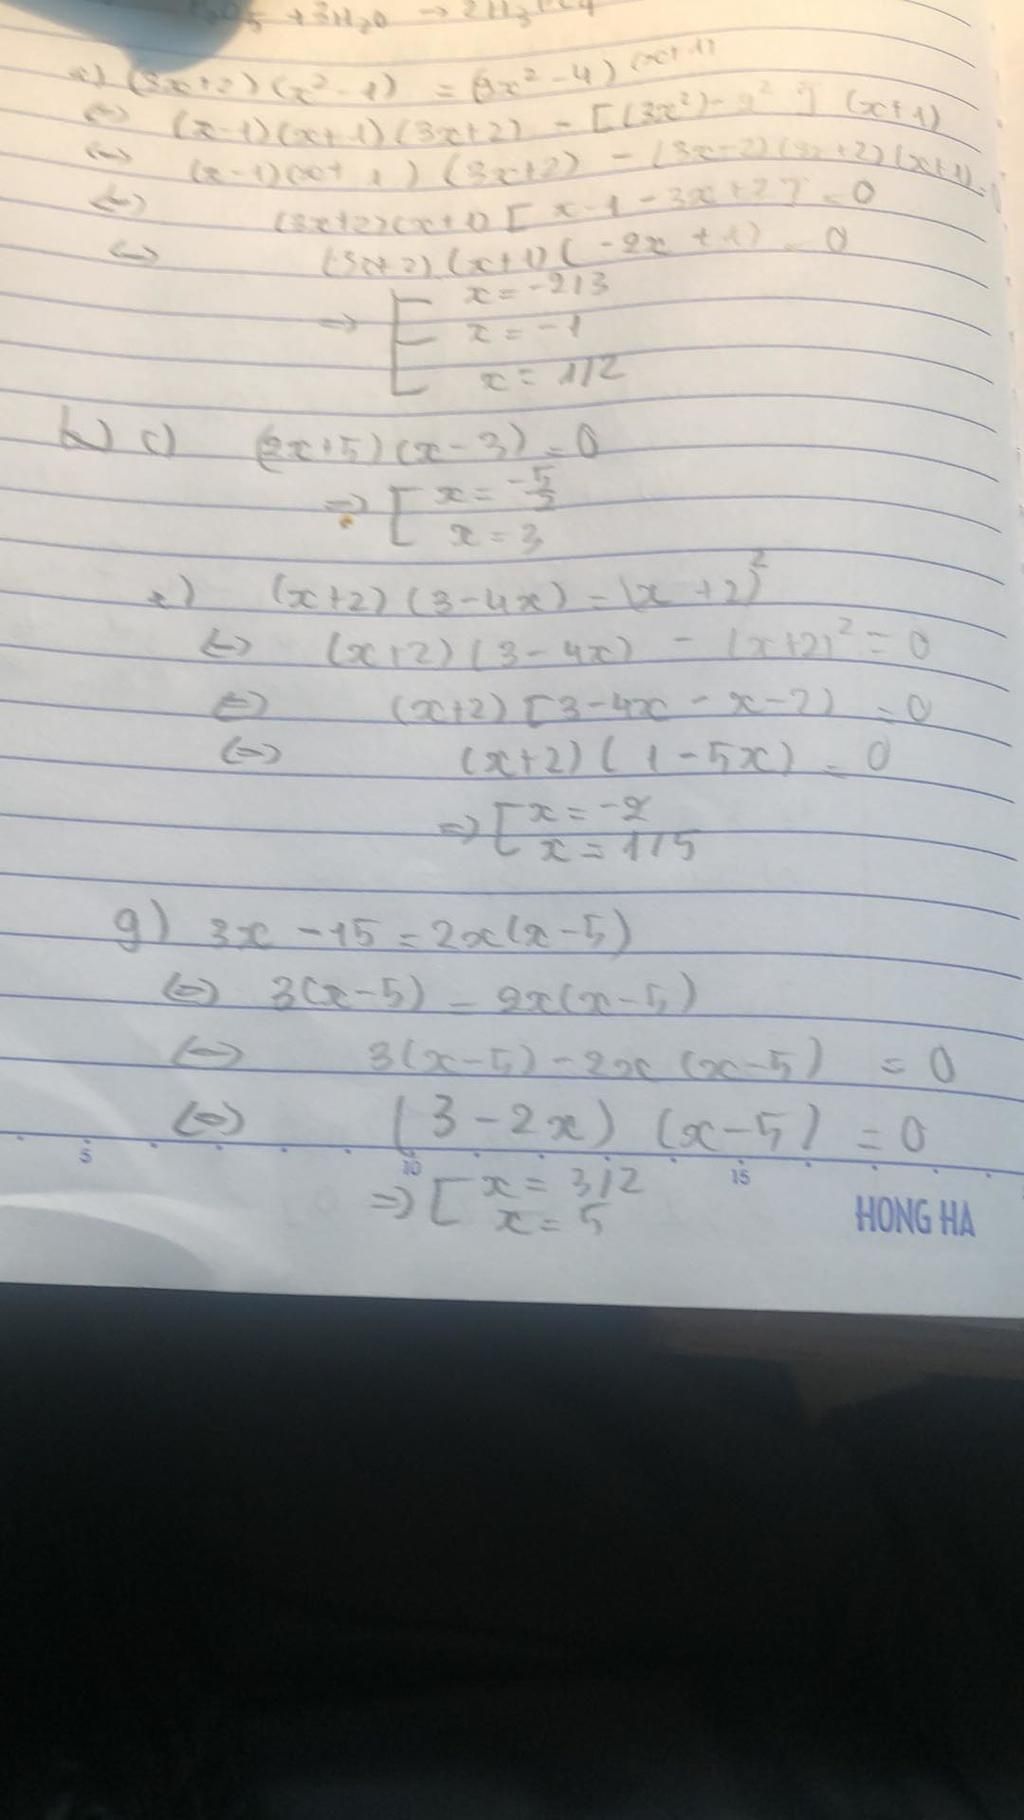 +3H₂O → 2H₃
(3x+2)(x²-1) = (9x²-4)(x+1)
<=> (x-1)(x+1)(3x+2) - [(3x²)-2²] (x+1)
<=> (x-1)(x+1)(3x+2) - (3x-2)(3x+2)(x+1) = 0
<=> (3x+2)(x+1) [x-1-3x+2] = 0
<=> (3x+2)(x+1)(-2x+1) = 0
=> [ x = -2/3
x = -1
x = 1/2
b) c) (2x+5)(x-3) = 0
=> [ x = -5/2
x = 3
e) (x+2)(3-4x) = (x+2)²
<=> (x+2)(3-4x) - (x+2)² = 0
<=> (x+2)[3-4x-x-2) = 0
<=> (x+2)(1-5x) = 0
=> [ x = -2
x = 1/5
g) 3x-15 = 2x(x-5)
<=> 3(x-5) = 2x(x-5)
<=> 3(x-5)-2x(x-5) = 0
<=> (3-2x)(x-5) = 0
5 10 15
=> [ x = 3/2
x = 5
HONG HA